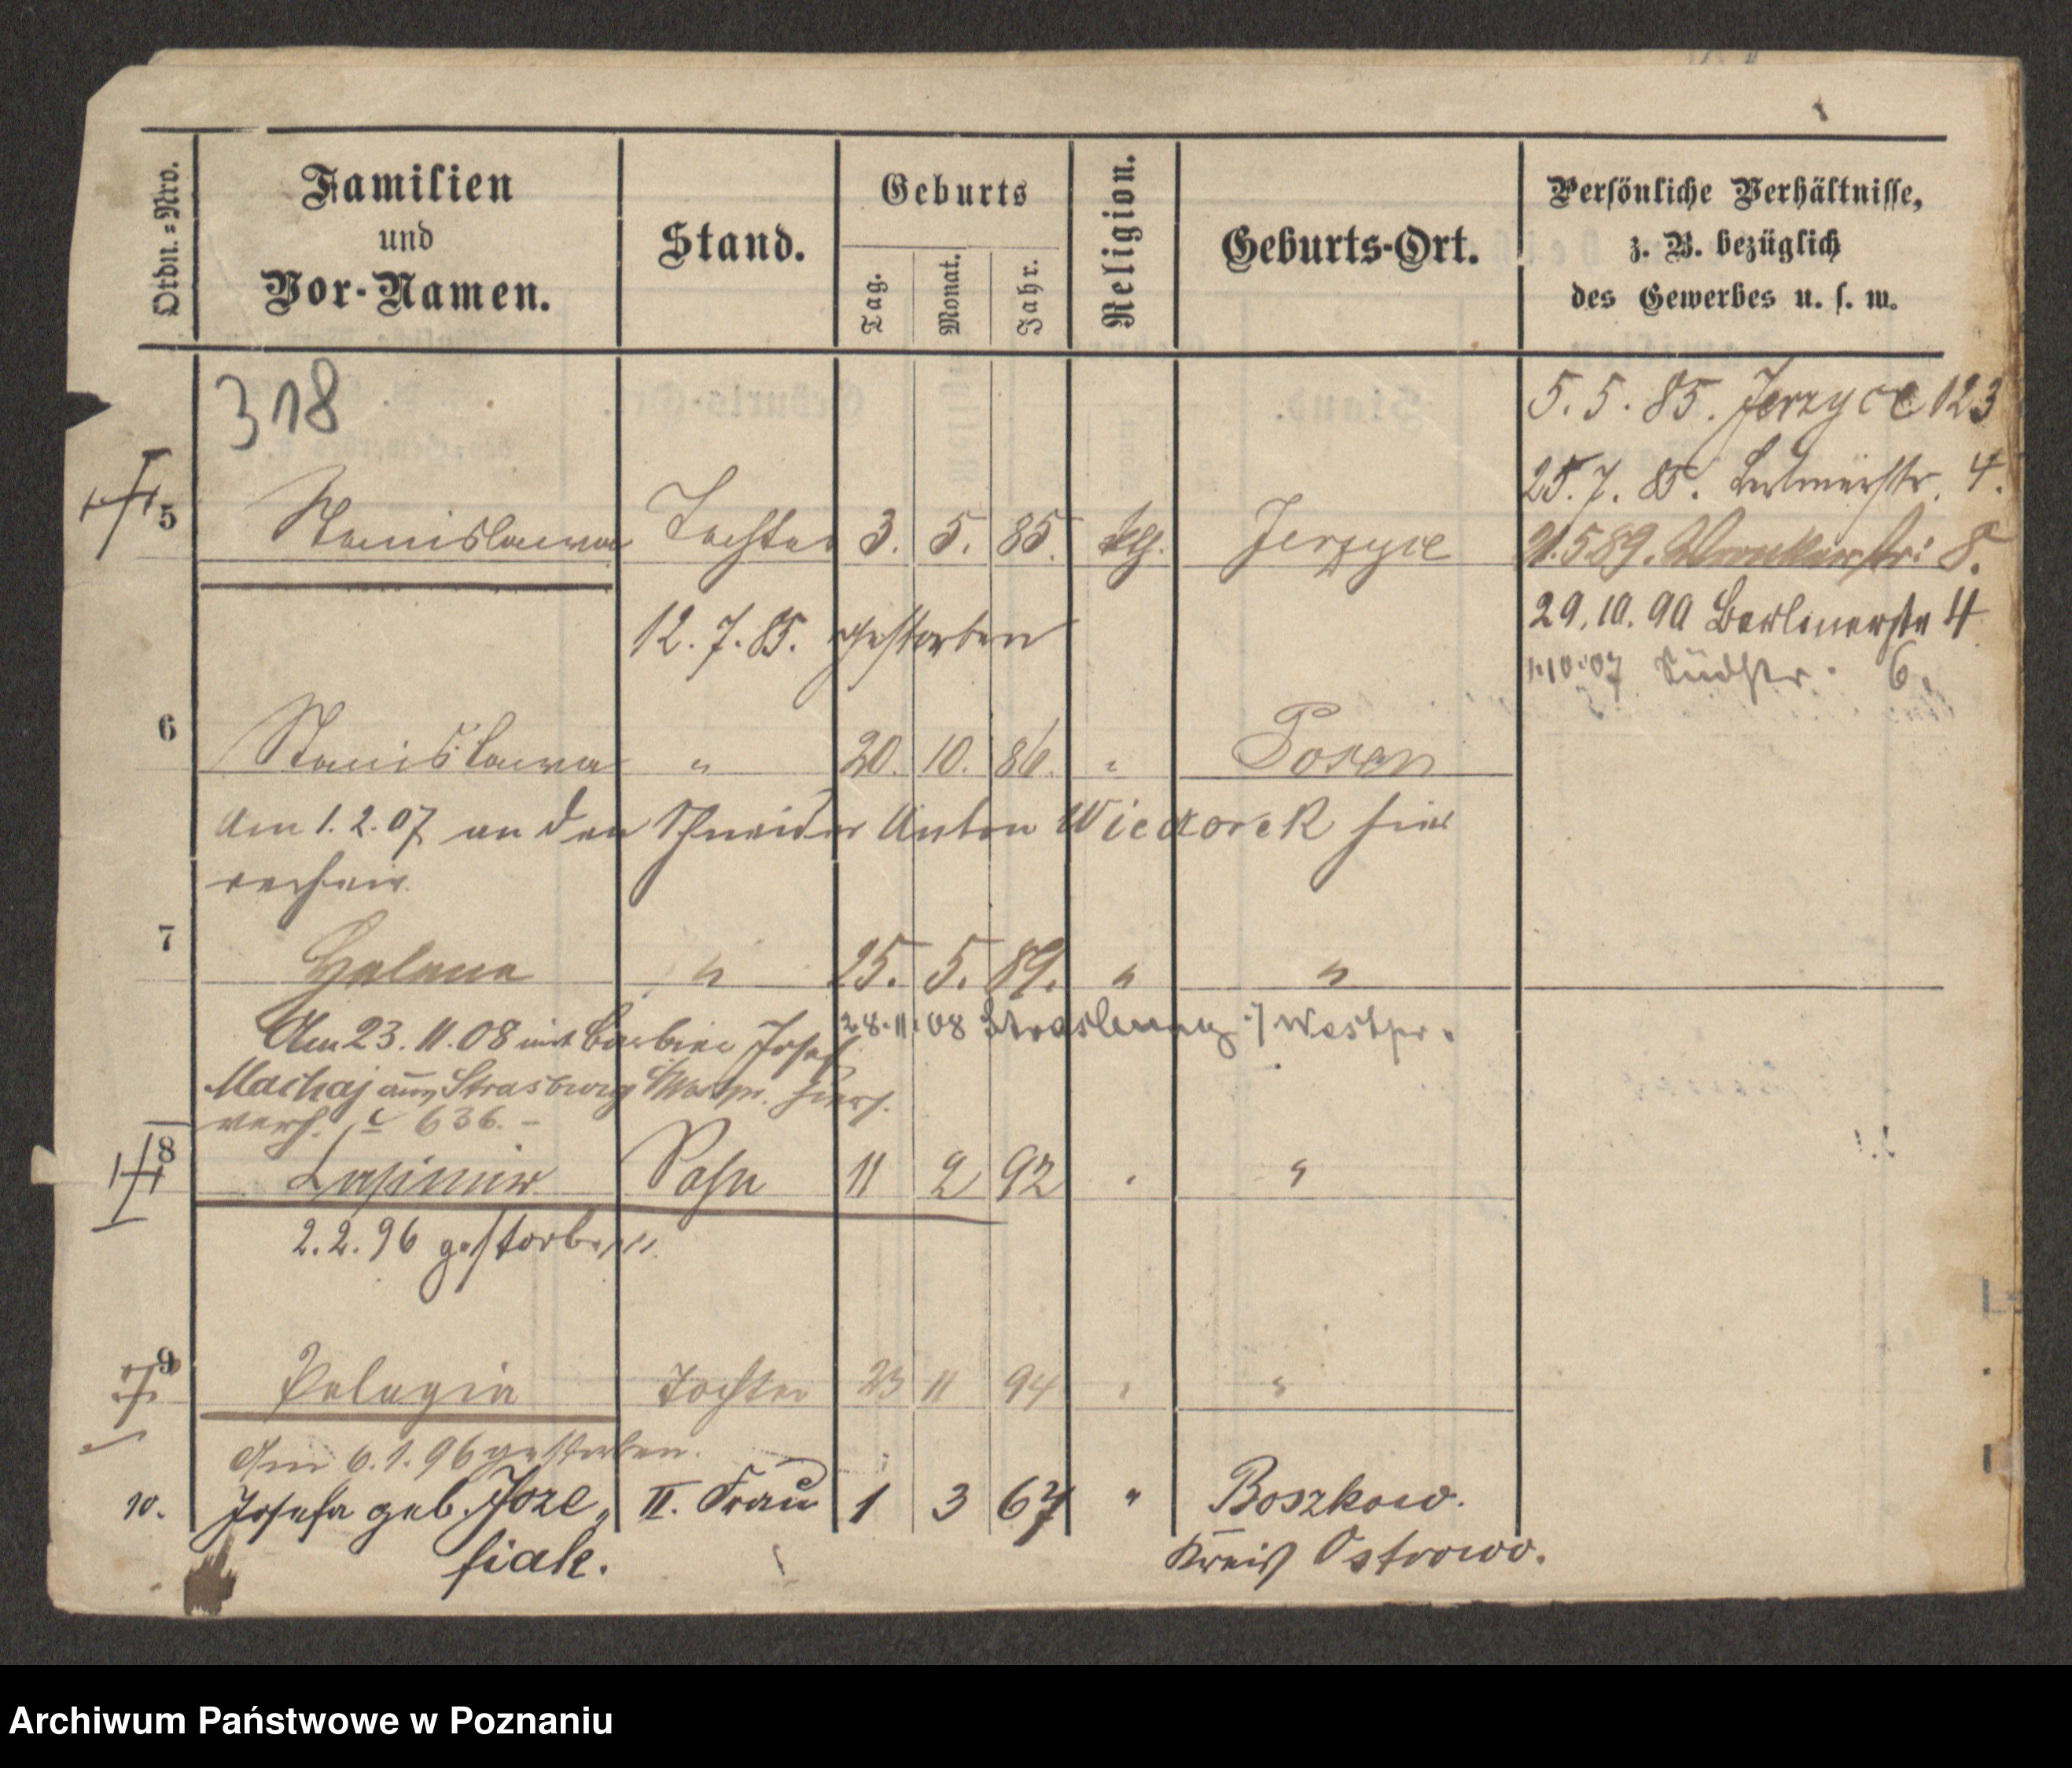 Ordn.-Nro.
Familien
und
Vor-Namen.
Stand.
Geburts
Tag.
Monat.
Jahr.
Religion.
Geburts-Ort.
Persönliche Verhältnisse,
z. B. bezüglich
des Gewerbes u. s. w.
318
5.5.85. Jerzyce 123
25.7.85. 4.
5 Stanislawa Tochter 3. 5. 85. kth. Jerzyce
21.5.89. Wronkerstr: 8.
12.7.85. gestorben
29.10.90 Berlinerstr 4
1.10.07 Südstr. 6.
6 Stanislawa " 20. 10. 86. " Posen
Am 1.2.07 an den Schneider Anton Wieczorek hier
verheir.
7 Helena " 25. 5. 89. " "
Am 23.11.08 mit Barbier Josef
28.11.08 Strasburg /Westpr.
Machaj aus Strasburg /Westpr. hiers.
verh. C 636. –
8 Kasimir Sohn 11 2 92 " "
2.2.96 gestorben.
9 Pelagia Tochter 23 11 94 " "
Am 6.1.96 gestorben.
10. Josefa geb. Joze- II. Frau 1 3 67 " Boszkow.
fiak.
Kreis Ostrowo.
Archiwum Państwowe w Poznaniu